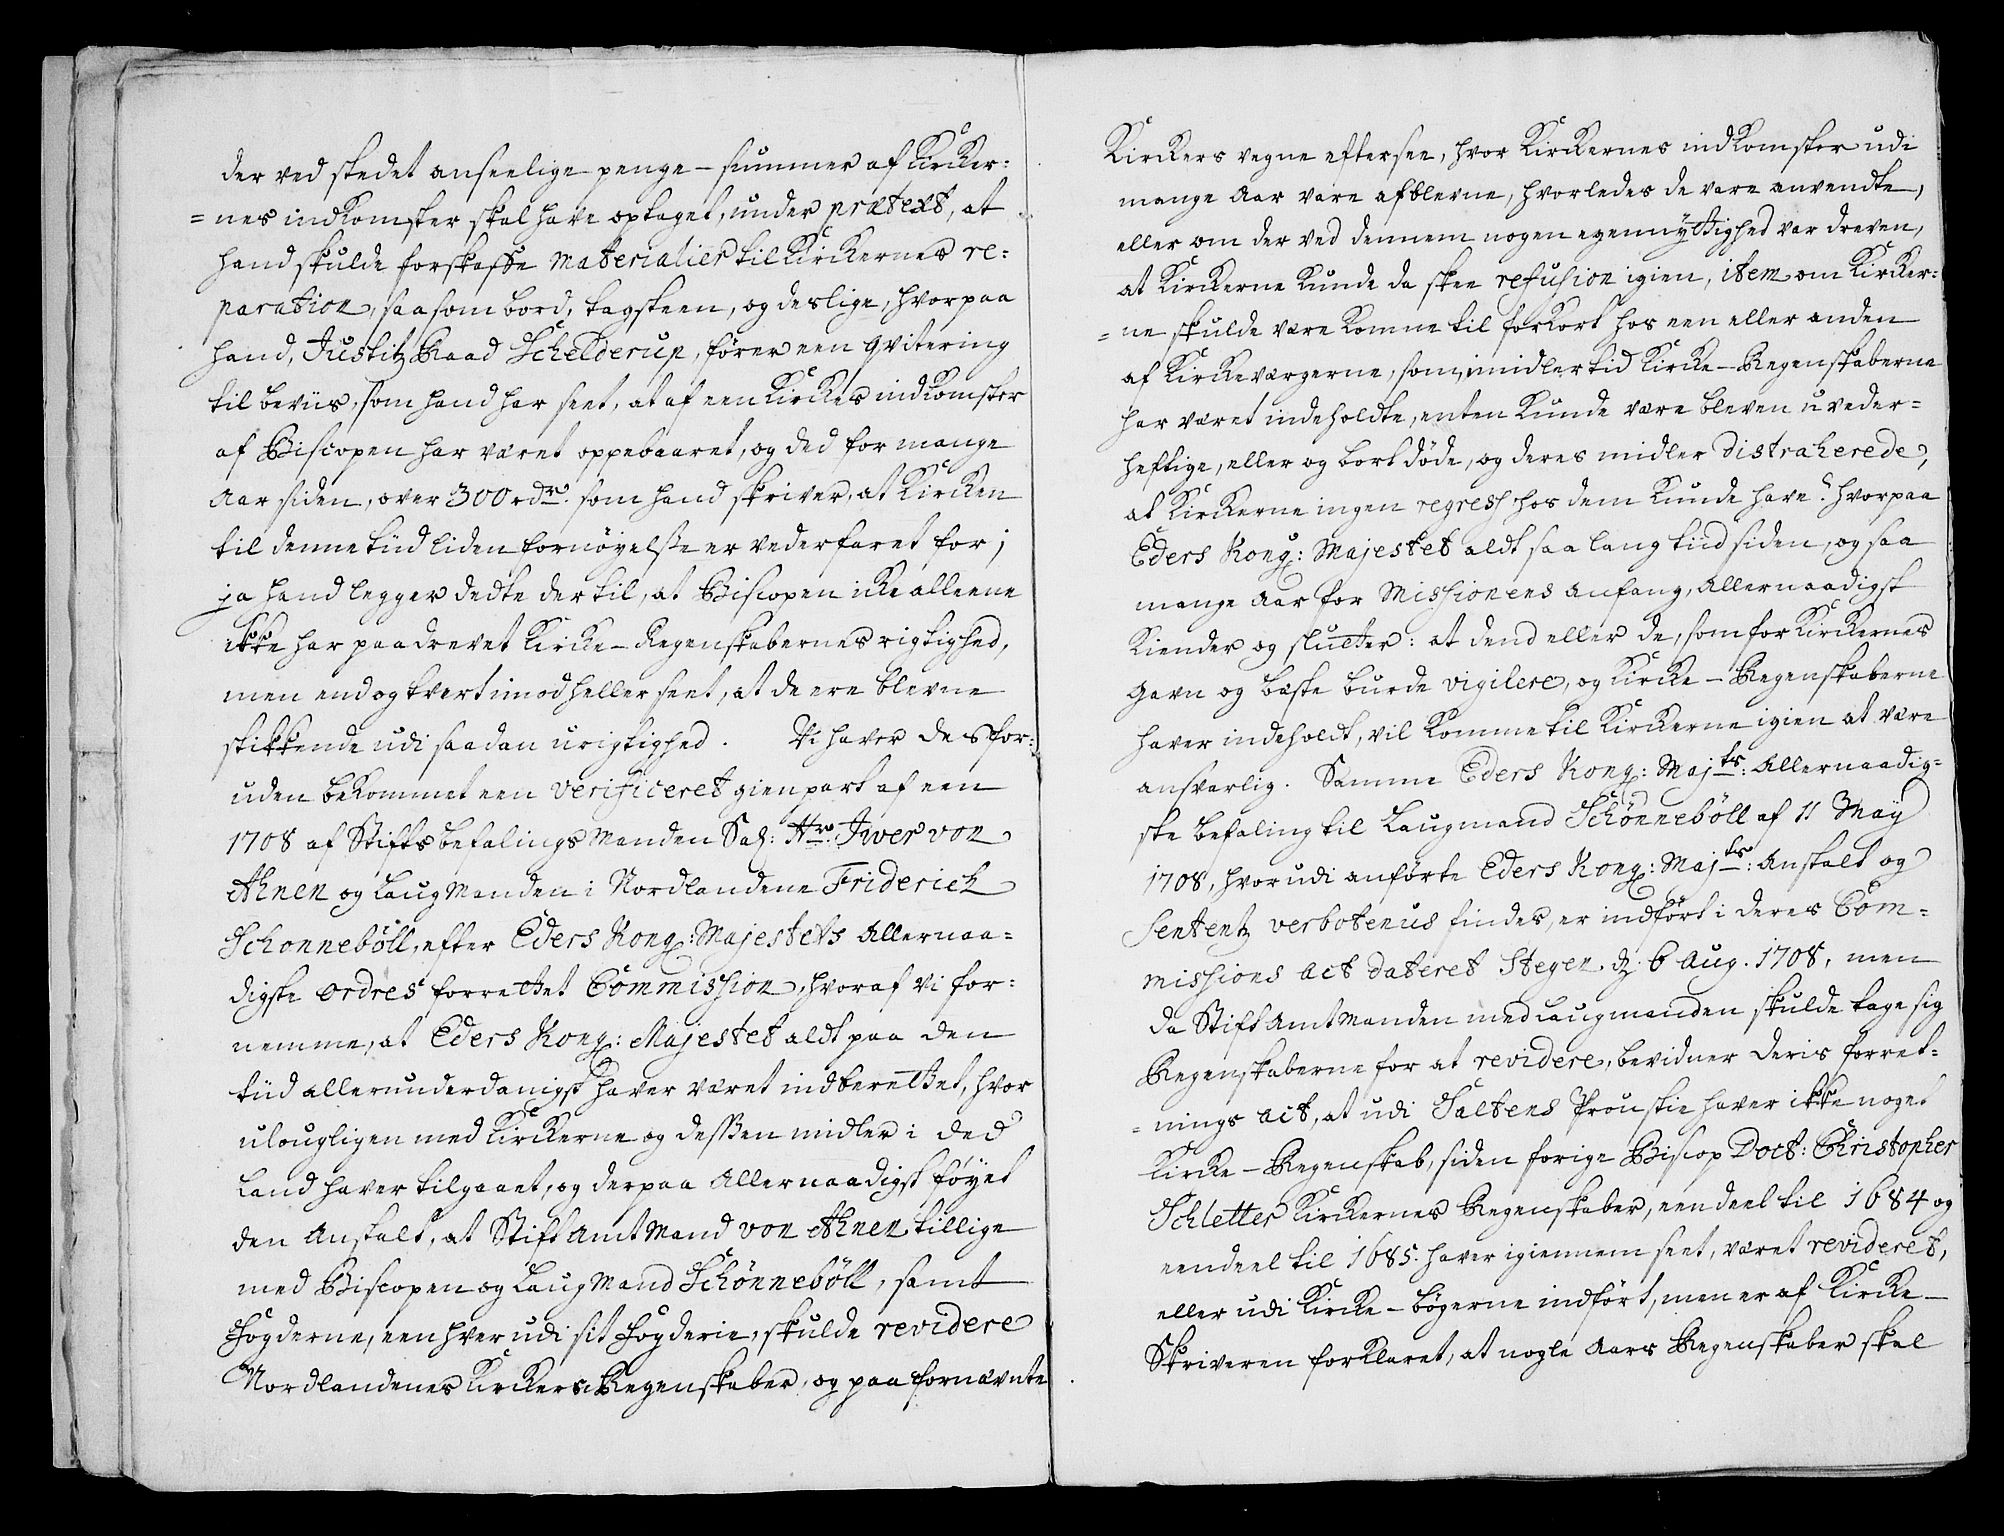 der ved stedet anseelige penge-summer af Kircker-
=nes indkomster skal have optaget, under prætext, at
hand skulde forskaffe Materialier til Kirckernes re-
paration, saasom bord, tagsteen, og deslige, hvorpaa
hand, Justitz Raad Schelderup, fører een qvitering
til beviis, som hand har seet, at af een Kirckes indkomster
af Biscopen har været oppebaaret, og ded for mange
Aar siden, over 300 rdr. som hand skriver, at Kircken
til denne tiid liden fornøyelsse er vederfaret for;
ja hand legger dette der til, at Biscopen icke alleene
ikke har paadrevet Kircke-Regenskabernes rigtighed,
men endog tvertimod heller seet, at de ere blevne
stikkende udi saadan urigtighed. Vi haver desfor-
uden bekommet een verificeret gienpart af een
1708 af Stiftsbefalings Manden Sal: Hr. Iwer von
Ahnen og Laug Manden i Nordlandene Friderich
Schonnebøll, efter Eders Kong: Majestets Allernaa-
digste ordres forrettet Commission, hvoraf vi for-
nemme, at Eders Kong: Majestet aldt paa den
tiid allerunderdanigst haver været indberettet, hvor
ulougligen med Kirckerne og dessen midler i ded
Land haver tilgaaet, og derpaa Allernaadigst føyet
den Anstalt, at Stift Amt Mand von Ahnen tillige
med Biscopen og Laug Mand Schønnebøll, samt
Fogderne, een hver udi sit Fogderie, skulde revidere
Nordlandenes Kirckers Regenskaber, og paa fornævnte
Kirckers vegne eftersee, hvor Kirckernes indkomster udi
mange Aar vare afblevne, hvorledes de vare anvendte,
eller om der ved dennem nogen egennyttighed var dreven,
at Kirckerne kunde da skee refusion igien, item om Kircker-
=ne skulde være komne til forkort hos een eller anden
af Kirckeværgerne, som imidlertid Kircke-Regenskaberne
har været indeholdte, enten kunde være bleven uveder-
heftige, eller og bortdøde, og deres midler distraherede,
at Kirckerne ingen regress hos dem kunde have? hvorpaa
Eders Kong: Majestet aldt saa lang tiid siden, og saa
mange Aar for Missionens Anfang, Allernaadigst
kiender og slutter: at dend eller de, som for Kirckernes
Gavn og beste burde vigilere, og Kircke-Regenskaberne
haver indeholdt, vil komme til Kirckerne igien at være
ansvarlig. Samme Eders Kong: Majts: Allernaadig-
ste befaling til Laugmand Schønnebøll af 11 May
1708, hvorudi anførte Eders Kong: Majts: Anstalt og
Sententz verbotenus findes, er indført i deres Com-
missions Act dateret Stegen d. 6 Aug. 1708, men
da Stift Amt Manden med Laugmanden skulde tage sig
Regenskaberne for at revidere, bevidner deris forret-
=nings Act, at udi Saltens Proustie haver ikke noget
Kircke-Regenskab, siden forige Biscop Doct: Christopher
Schletter Kirckernes Regenskaber, een deel til 1684 og
een deel til 1685. haver igiennem seet, været revideret,
eller udi Kircke-bøgerne indført, men er af Kircke-
Skriveren forklaret, at nogle Aars Regenskaber skal